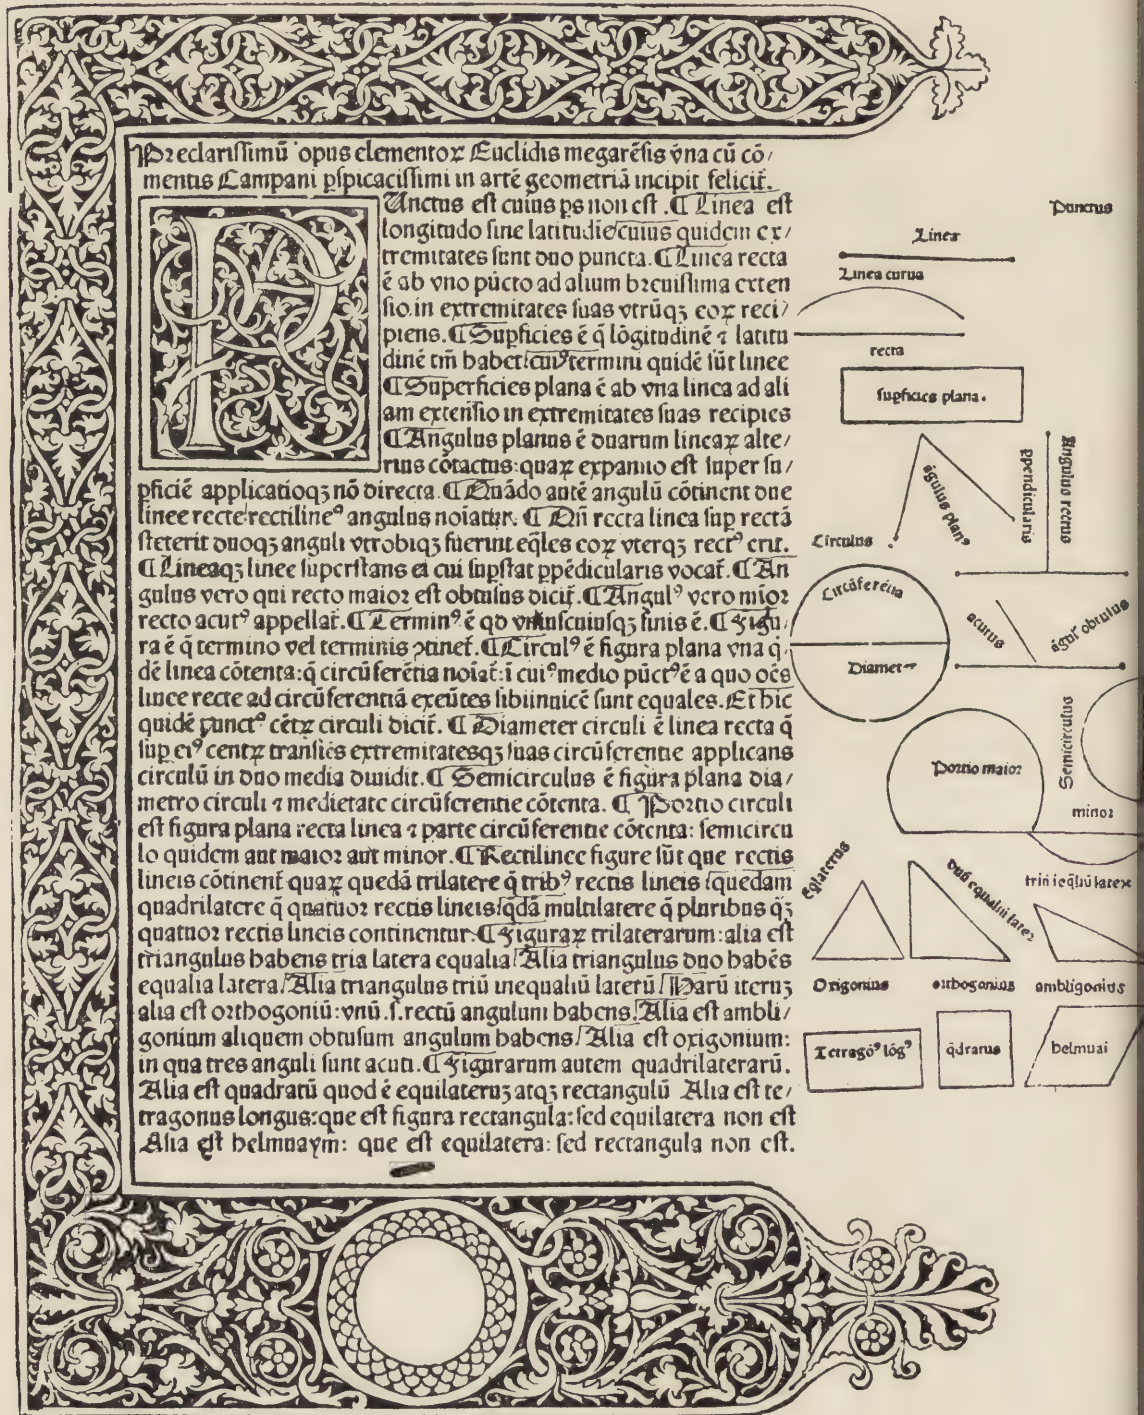 Preclarissimũ opus elementoꝝ Euclidis megarẽsis ṽna cũ cõ/
mentis Campani ꝑspicacissimi in artẽ geometriã incipit felicit̃.
Unctus est cuius ps non est. ¶ Linea est
longitudo sine latitudie cuius quidem ex/
tremitates sunt duo puncta. ¶ Linea recta
ẽ ab vno pũcto ad alium breuissima exten
sio in extremitates suas vtrũqꝫ eoꝝ reci/
piens. ¶ Supficies ẽ q̃ lõgitudinẽ ⁊ latitu
dinẽ tm̃ habet: cuiꝰ termini quidẽ sũt linee
¶ Superficies plana ẽ ab vna linea ad ali
am extensio in extremitates suas recipiẽs
¶ Angulus planus ẽ duarum lineaꝝ alte/
rius cõtactus: quaꝝ expansio est super su/
ꝑficiẽ applicatioqꝫ nõ directa. ¶ Quãdo autẽ angulũ cõtinent due
linee recte rectilineꝰ angulus noiatur. ¶ Qñ recta linea sup rectã
steterit duoqꝫ anguli vtrobiqꝫ fuerint eq̃les eoꝝ vterqꝫ rectꝰ erit.
¶ Lineaqꝫ linee superstans ei cui supstat ꝑpẽdicularis vocat̃. ¶ An
gulus vero qui recto maior est obtusus dicit̃. ¶ Angulꝰ vero mĩor
recto acutꝰ appellat̃. ¶ Terminꝰ ẽ qd vniuscuiusqꝫ finis ẽ. ¶ Figu/
ra ẽ q̃ termino vel terminis ↄtinet̃. ¶ Circulꝰ ẽ figura plana vna q̃/
dẽ linea cõtenta: q̃ circũferẽtia noiat̃: ĩ cuiꝰ medio pũctꝰ ẽ a quo oẽs
linee recte ad circũferentiã exeũtes sibiinuicẽ sunt equales. Et hic
quidẽ punctꝰ cẽtꝝ circuli dicit̃. ¶ Diameter circuli ẽ linea recta q̃
sup eiꝰ centꝝ transiẽs extremitatesqꝫ suas circũferentie applicans
circulũ in duo media diuidit. ¶ Semicirculus ẽ figura plana dia/
metro circuli ⁊ medietate circũferentie cõtenta. ¶ Portio circuli
est figura plana recta linea ⁊ parte circũferentie cõtenta: semicircu
lo quidem aut maior aut minor. ¶ Rectilinee figure sũt que rectis
lineis cõtinent̃ quaꝝ quedã trilatere q̃ tribꝰ rectis lineis quedam
quadrilatere q̃ quatuor rectis lineis q̃dã multilatere q̃ pluribus q̃ꝫ
quatuor rectis lineis continentur. ¶ Figuraꝝ trilaterarum: alia est
triangulus habens tria latera equalia. Alia triangulus duo habẽs
equalia latera. Alia triangulus triũ inequaliũ laterũ. Harũ iteruꝫ
alia est orthogoniũ: vnũ .s. rectũ angulum habens. Alia est ambli/
gonium aliquem obtusum angulum habens. Alia est oxigonium:
in qua tres anguli sunt acuti. ¶ Figurarum autem quadrilaterarũ.
Alia est quadratũ quod ẽ equilateruꝫ atqꝫ rectangulũ Alia est te/
tragonus longus: que est figura rectangula: sed equilatera non est
Alia est helmuaym: que est equilatera: sed rectangula non est.
Punctus
Linea
Linea curua
recta
supficies plana.
ãgulus planꝰ
ꝑpendicularis
Angulus rectus
Circulus
Circũferẽtia
Diameter
acutus
ãgulꝰ obtusus
Portio maior
Semicirculus
minor
Eq̃laterus
duũ equaliũ lateꝝ
triũ ĩeq̃liũ lateꝝ
Origonius
orthogonius
ambligonius
Tetragõꝰ lõgꝰ
q̃dratus
helmuai